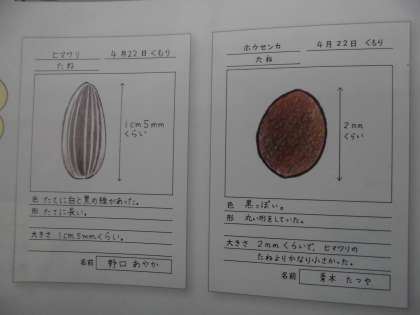 ヒマワリ 4月22日 くもり
たね
1cm5mm
くらい
色 たてに白と黒の線があった。
形 たてに長い。
大きさ 1cm5mmくらい。
名前 野口 あやか
ホウセンカ 4月22日 くもり
たね
2mm
くらい
色 黒っぽい。
形 丸い形をしていた。
大きさ 2mmくらいで、ヒマワリの
たねよりかなり小さかった。
名前 青木 たつや